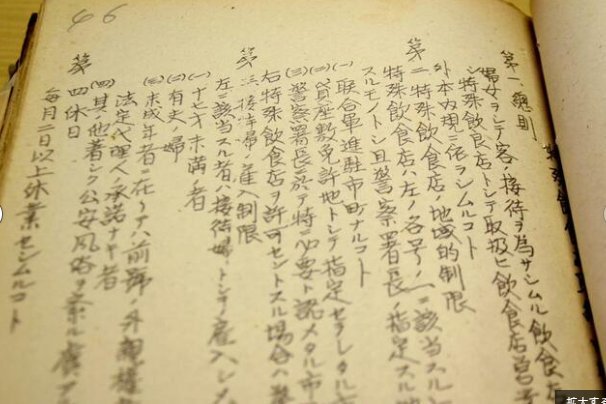 46
特殊飲食
第一、總則
婦女ヲシテ客ノ接待ヲ為サシムル飲食店
ヲ特殊飲食店トシテ取扱ヒ飲食店営業
外本内規ニ依ラシムルコト
第二、特殊飲食店ノ地域的制限
特殊飲食店ハ左ノ各号ノ一ニ該当スル
スルモノトシ且警察署長ノ指定スル地
(一) 联合軍進駐市町ナルコト
(二) 貸座敷免許地トシテ指定セラレタル市
(三) 警察署長ニ於テ特ニ必要ト認メタル市
右特殊飲食店ヲ許可セントスル場合ハ
第三、接待婦ノ雇入制限
左ニ該当スル者ハ接待婦トシテ雇入レシメ
(一) 十七才未満ノ者
(二) 有夫ノ婦
(三) 未成年者ニ在リテハ前号ノ外親権
法定代理人ノ承諾ナキ者
(四) 其ノ他著シク公安風俗ヲ紊ル虞ア
第四休日
毎月二日以上休業セシムルコト
拡大する